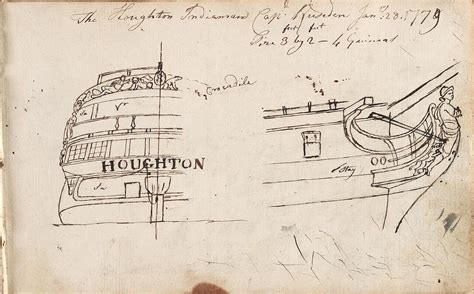 The Houghton Indiaman Capt. Jan. 28. 1779
feet feet
Size 3 by 2 — 4 Guineas
Crocodile
HOUGHTON